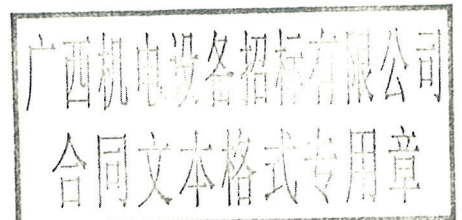 广西机电设备招标有限公司
合同文本格式专用章